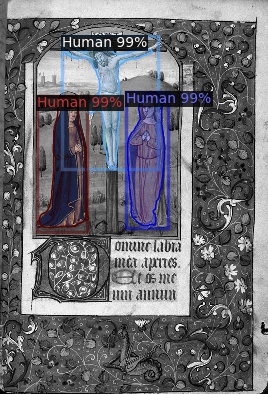 Human 99%
Human 99%
Human 99%
omine labia
mea aperies.
Et os me
um annun